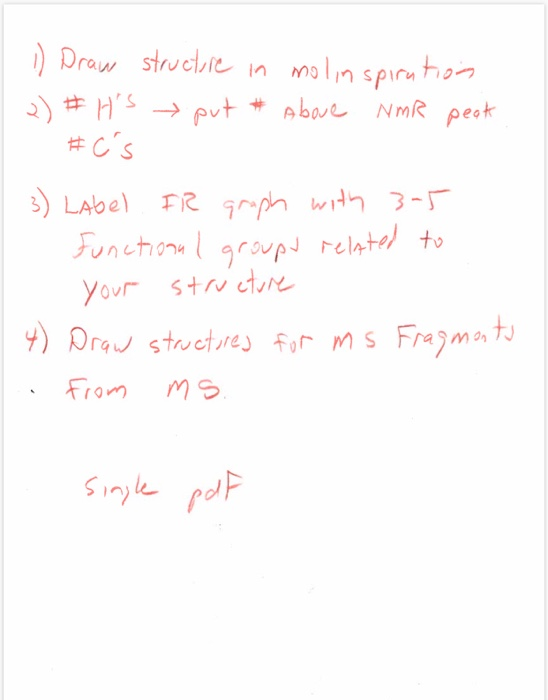 1) Draw structure in molinspiration
2) # H's → put # Above NMR peak
# C's
3) LAbel IR graph with 3-5
Functional groups related to
your structure
4) Draw structures for MS Fragments
From MS.
Single pdF